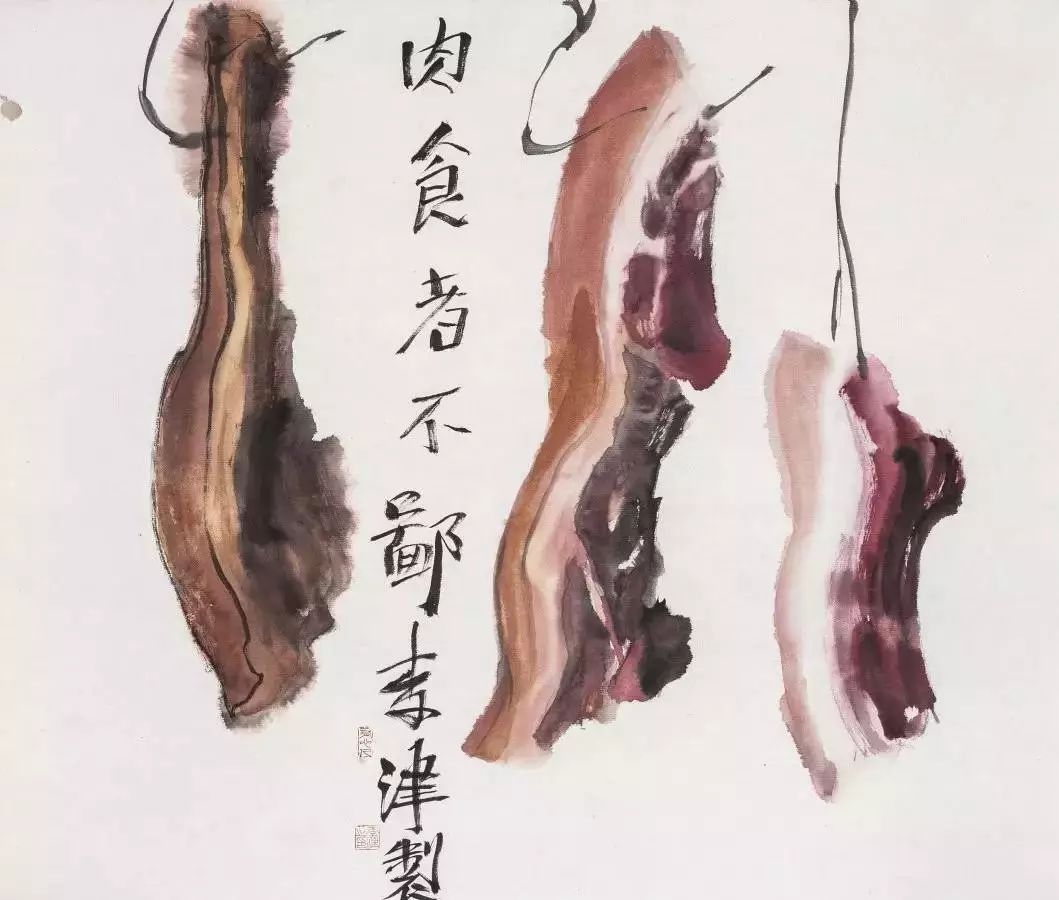 肉食者不鄙李津製